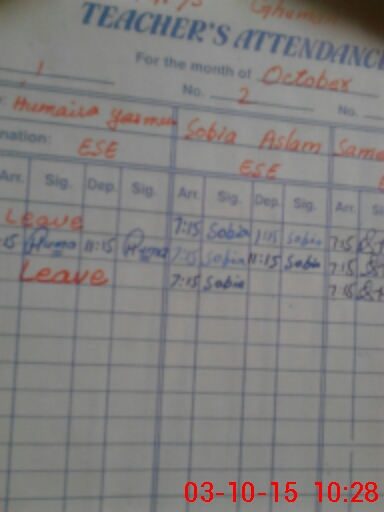 Ghuman
TEACHER'S ATTENDANCE
For the month of October
1 No. 2 No.
Humaira Yasmin Sobia Aslam Same
nation: ESE ESE
Arr. Sig. Dep. Sig. Arr. Sig. Dep. Sig. Arr. Si
Leave 7:15 Sobia 1:15 Sobia 7:15
:15 Huma 11:15 Huma 7:15 Sobia 11:15 Sobia 7:15
Leave 7:15 Sobia 7:15
03-10-15 10:28